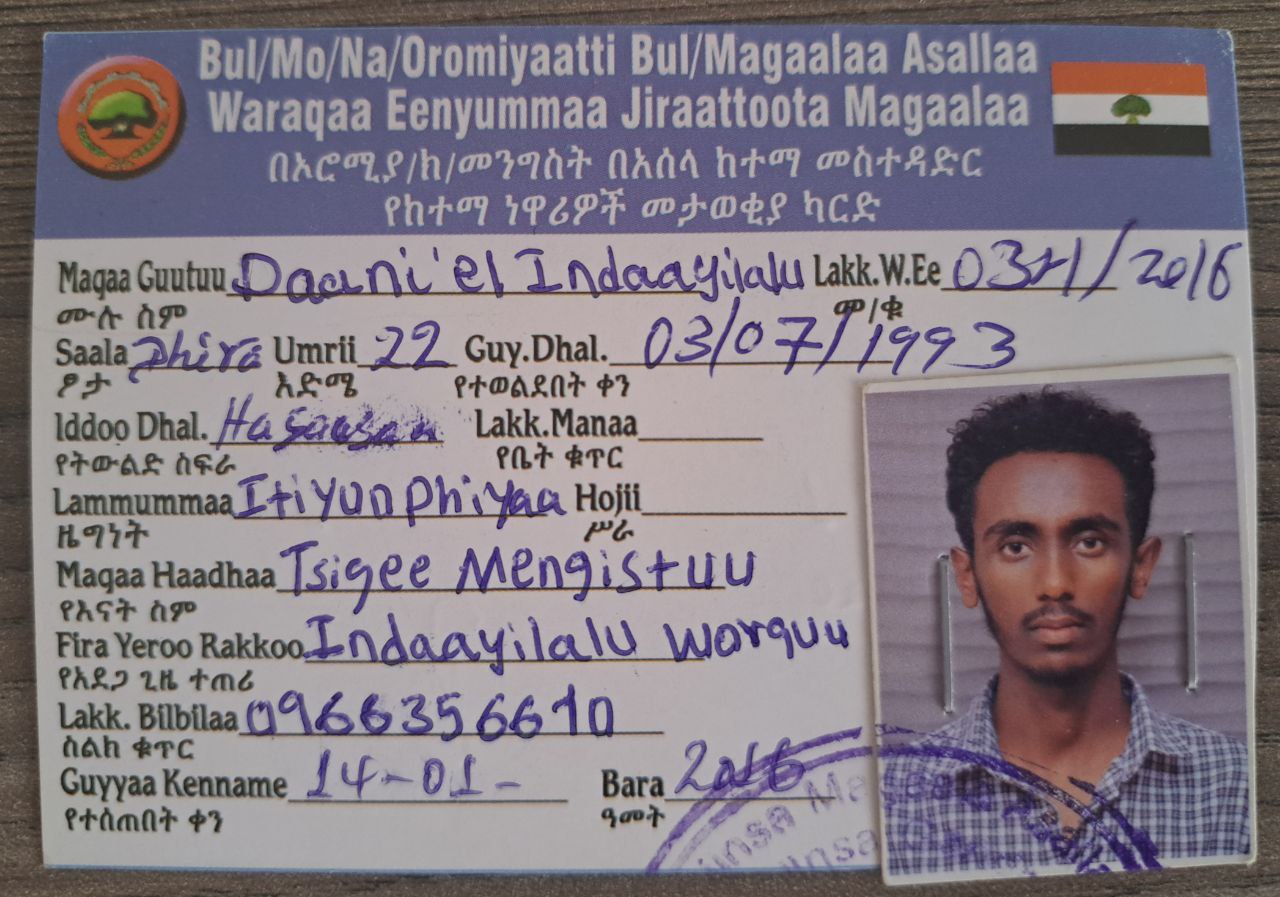 Bul/Mo/Na/Oromiyaatti Bul/Magaalaa Asallaa
Waraqaa Eenyummaa Jiraattoota Magaalaa
በኦሮሚያ/ክ/መንግስት በአሰላ ከተማ መስተዳድር
የከተማ ነዋሪዎች መታወቂያ ካርድ
Maqaa Guutuu Daani'el Indaayilalu Lakk.W.Ee /2016
ሙሉ ስም መ/ቁ
Saala Dhira Umrii 22 Guy.Dhal. 03/07/1993
ፆታ እድሜ የተወልደበት ቀን
Iddoo Dhal. Lakk.Manaa
የትውልድ ስፍራ የቤት ቁጥር
Lammummaa Itiyunphiyaa Hojii
ዜግነት ሥራ
Maqaa Haadhaa Tsigee Mengistuu
የእናት ስም
Fira Yeroo Rakkoo Indaayilalu Worquu
የአደጋ ጊዜ ተጠሪ
Lakk. Bilbilaa 0966356610
ስልክ ቁጥር
Guyyaa Kenname 14-01- Bara 2016
የተሰጠበት ቀን ዓመት